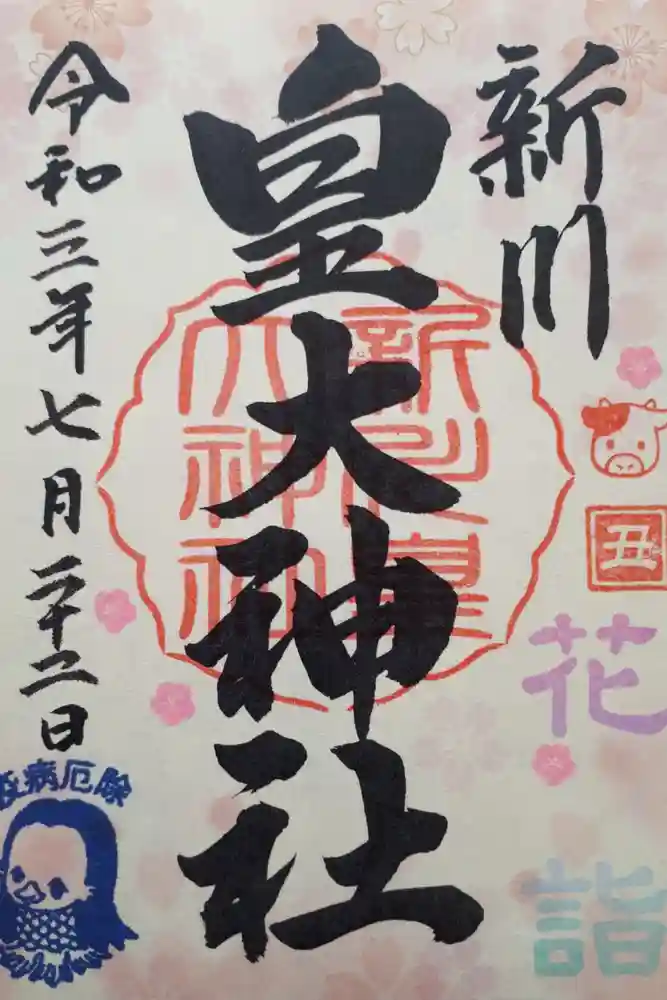 新川
皇大神社
令和三年七月二十二日
丑
花
詣
新川皇
大神社
疫病厄除